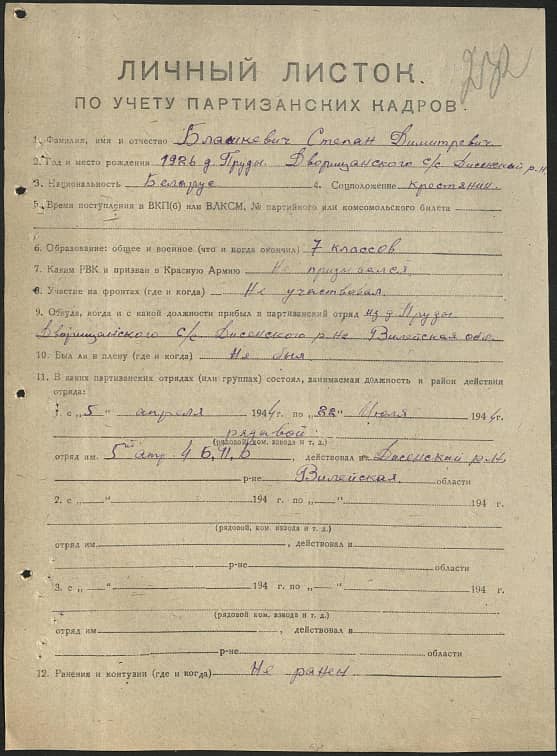 ЛИЧНЫЙ ЛИСТОК
ПО УЧЕТУ ПАРТИЗАНСКИХ КАДРОВ
1. Фамилия, имя и отчество Блашкевич Степан Димитревич
2. Год и место рождения 1926 д. Пруды. Дворищанского с/с Дисенский р-н
3. Национальность Беларус 4. Соцположение крестянин.
5. Время поступления в ВКП(б) или ВЛКСМ, № партийного или комсомольского билета
6. Образование: общее и военное (что и когда окончил) 7 классов
7. Каким РВК и призван в Красную Армию Не призывался
8. Участие на фронтах (где и когда) Не участвовал.
9. Откуда, когда и с какой должности прибыл в партизанский отряд из д Пруды
Дворищанского с/с Дисенского р-на Вилейская обл.
10. Был ли в плену (где и когда) Не был
11. В каких партизанских отрядах (или группах) состоял, занимаемая должность и район действия
отряда:
1. с „5" апреля 1944 г. по „22" Июля 1944 г.
рядовой.
(рядовой, ком. взвода и т. д.)
отряд им. 5й отр. 4 Б.П.Б , действовал в Дисенский р-н,
р-не Вилейская. области
2. с „ " 194 г. по „ " 194 г.
(рядовой, ком. взвода и т. д.)
отряд им. , действовал в
р-не области
3. с „ " 194 г. по „ " 194 г.
(рядовой, ком. взвода и т. д.)
отряд им. , действовал в
р-не области
12. Ранения и контузии (где и когда) Не ранен